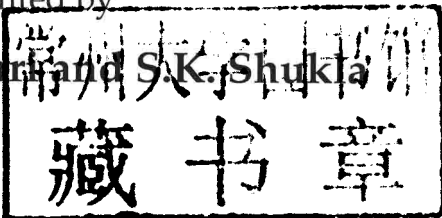 by
and S.K. Shukla
常州大学图书馆
藏书章